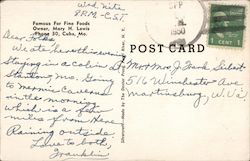 Wed. Nite
8 P.M. - C.S.T.
Famous For Fine Foods
Owner, Mary H. Lewis
Phone 50, Cuba, Mo.
POST CARD
SEP
1950
1 CENT 1
Dear Folks
We ate here this evening
Staying in a cabin at
Stanton, Mo. Going
to Meramec Caverns
in the morning
which is a few
miles from here
Raining outside
Love to both,
Franklin
Mr & Mrs J. Frank Seibert
516 Winchester Ave
Martinsburg, W. Va